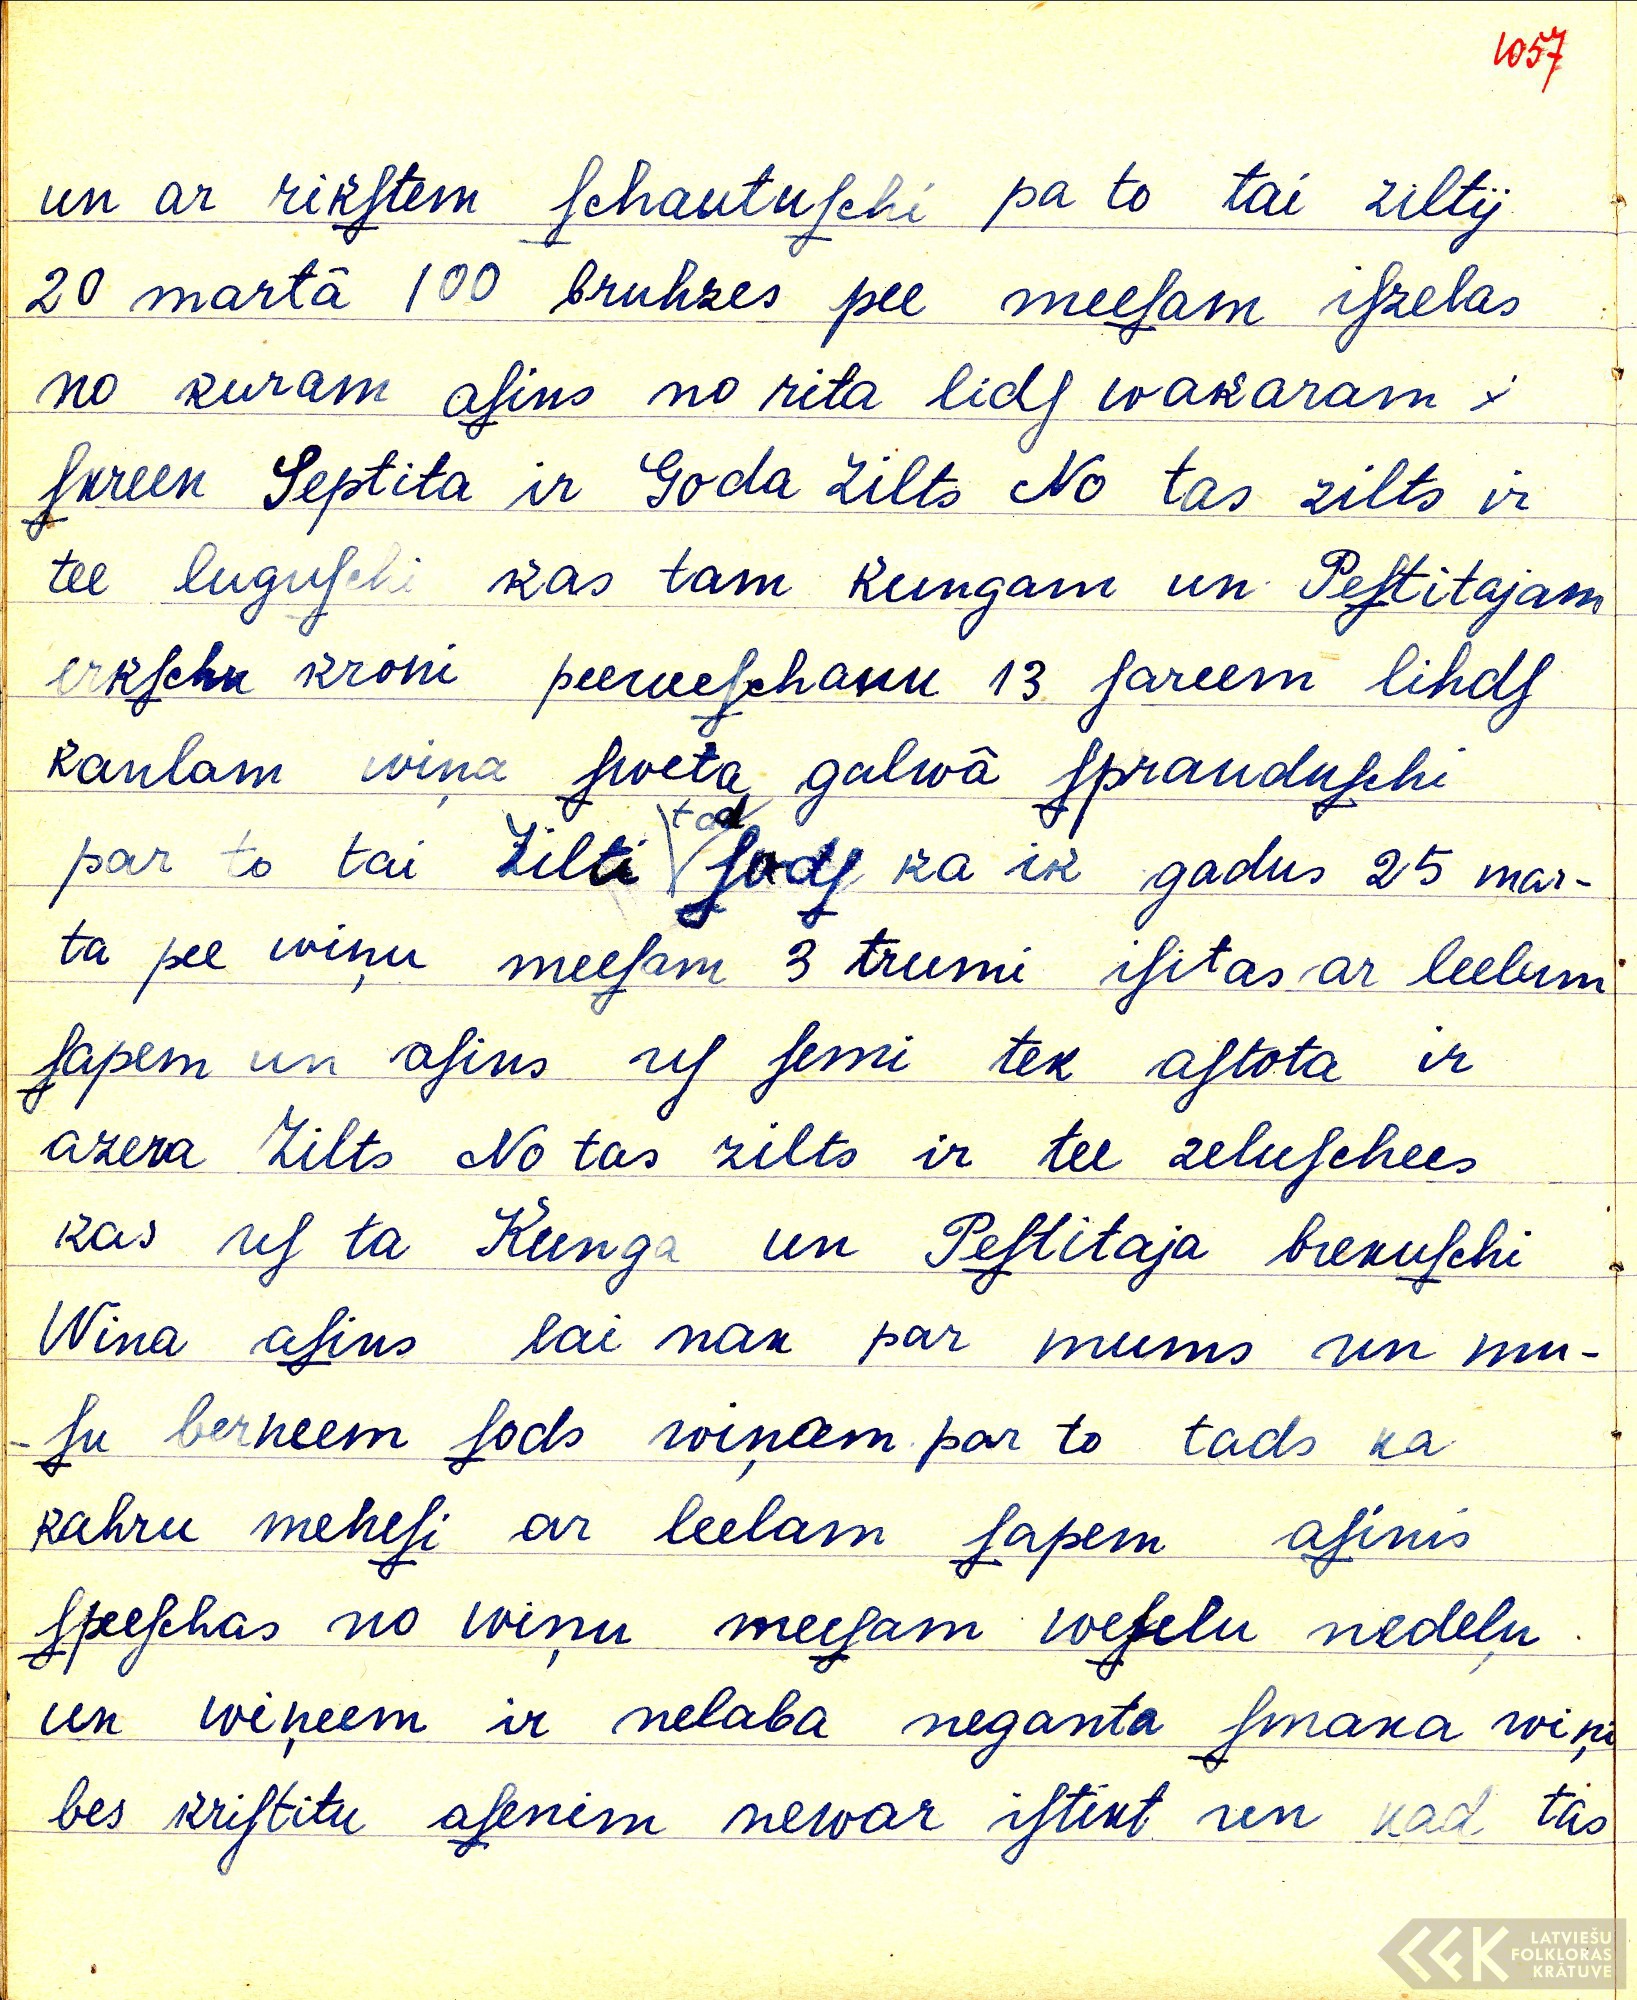 1057
un ar rikſtem ſchautuſchi pa to tai ziltij
20 martâ 100 bruhzes pee meeſam iſzelas
no kuram aſins no rita lidſ wakaram x
ſkreen Septita ir Goda Zilts No tas zilts ir
tee luguſchi kas tam kungam un Peſtitajam
erkſchu kroni peeneeſchanu 13 ſareem lihdſ
kaulam wiņa ſweta galwâ ſprauduſchi
par to tai Zilti tad ſodſ ka ik gadus 25 mar-
ta pee wiņu meeſam 3 trumi iſitas ar leelum
ſapem un aſins uſ ſemi tek aſtota ir
azera Zilts No tas zilts ir tee zeluſchees
kas uſ ta Kunga un Peſtitaja brekuſchi
Wina aſins lai nak par mums un mu-
-ſu berneem ſods wiņeem par to tads ka
kahru meheſi ar leelam ſapem aſinis
ſpeeſchas no wiņu meeſam weſelu nedeļu
un wiņeem ir nelaba neganta ſmaka wiņi
bes kriſtitu aſenim newar iſtikt un kad tâs
LATVIEŠU
FOLKLORAS
KRĀTUVE